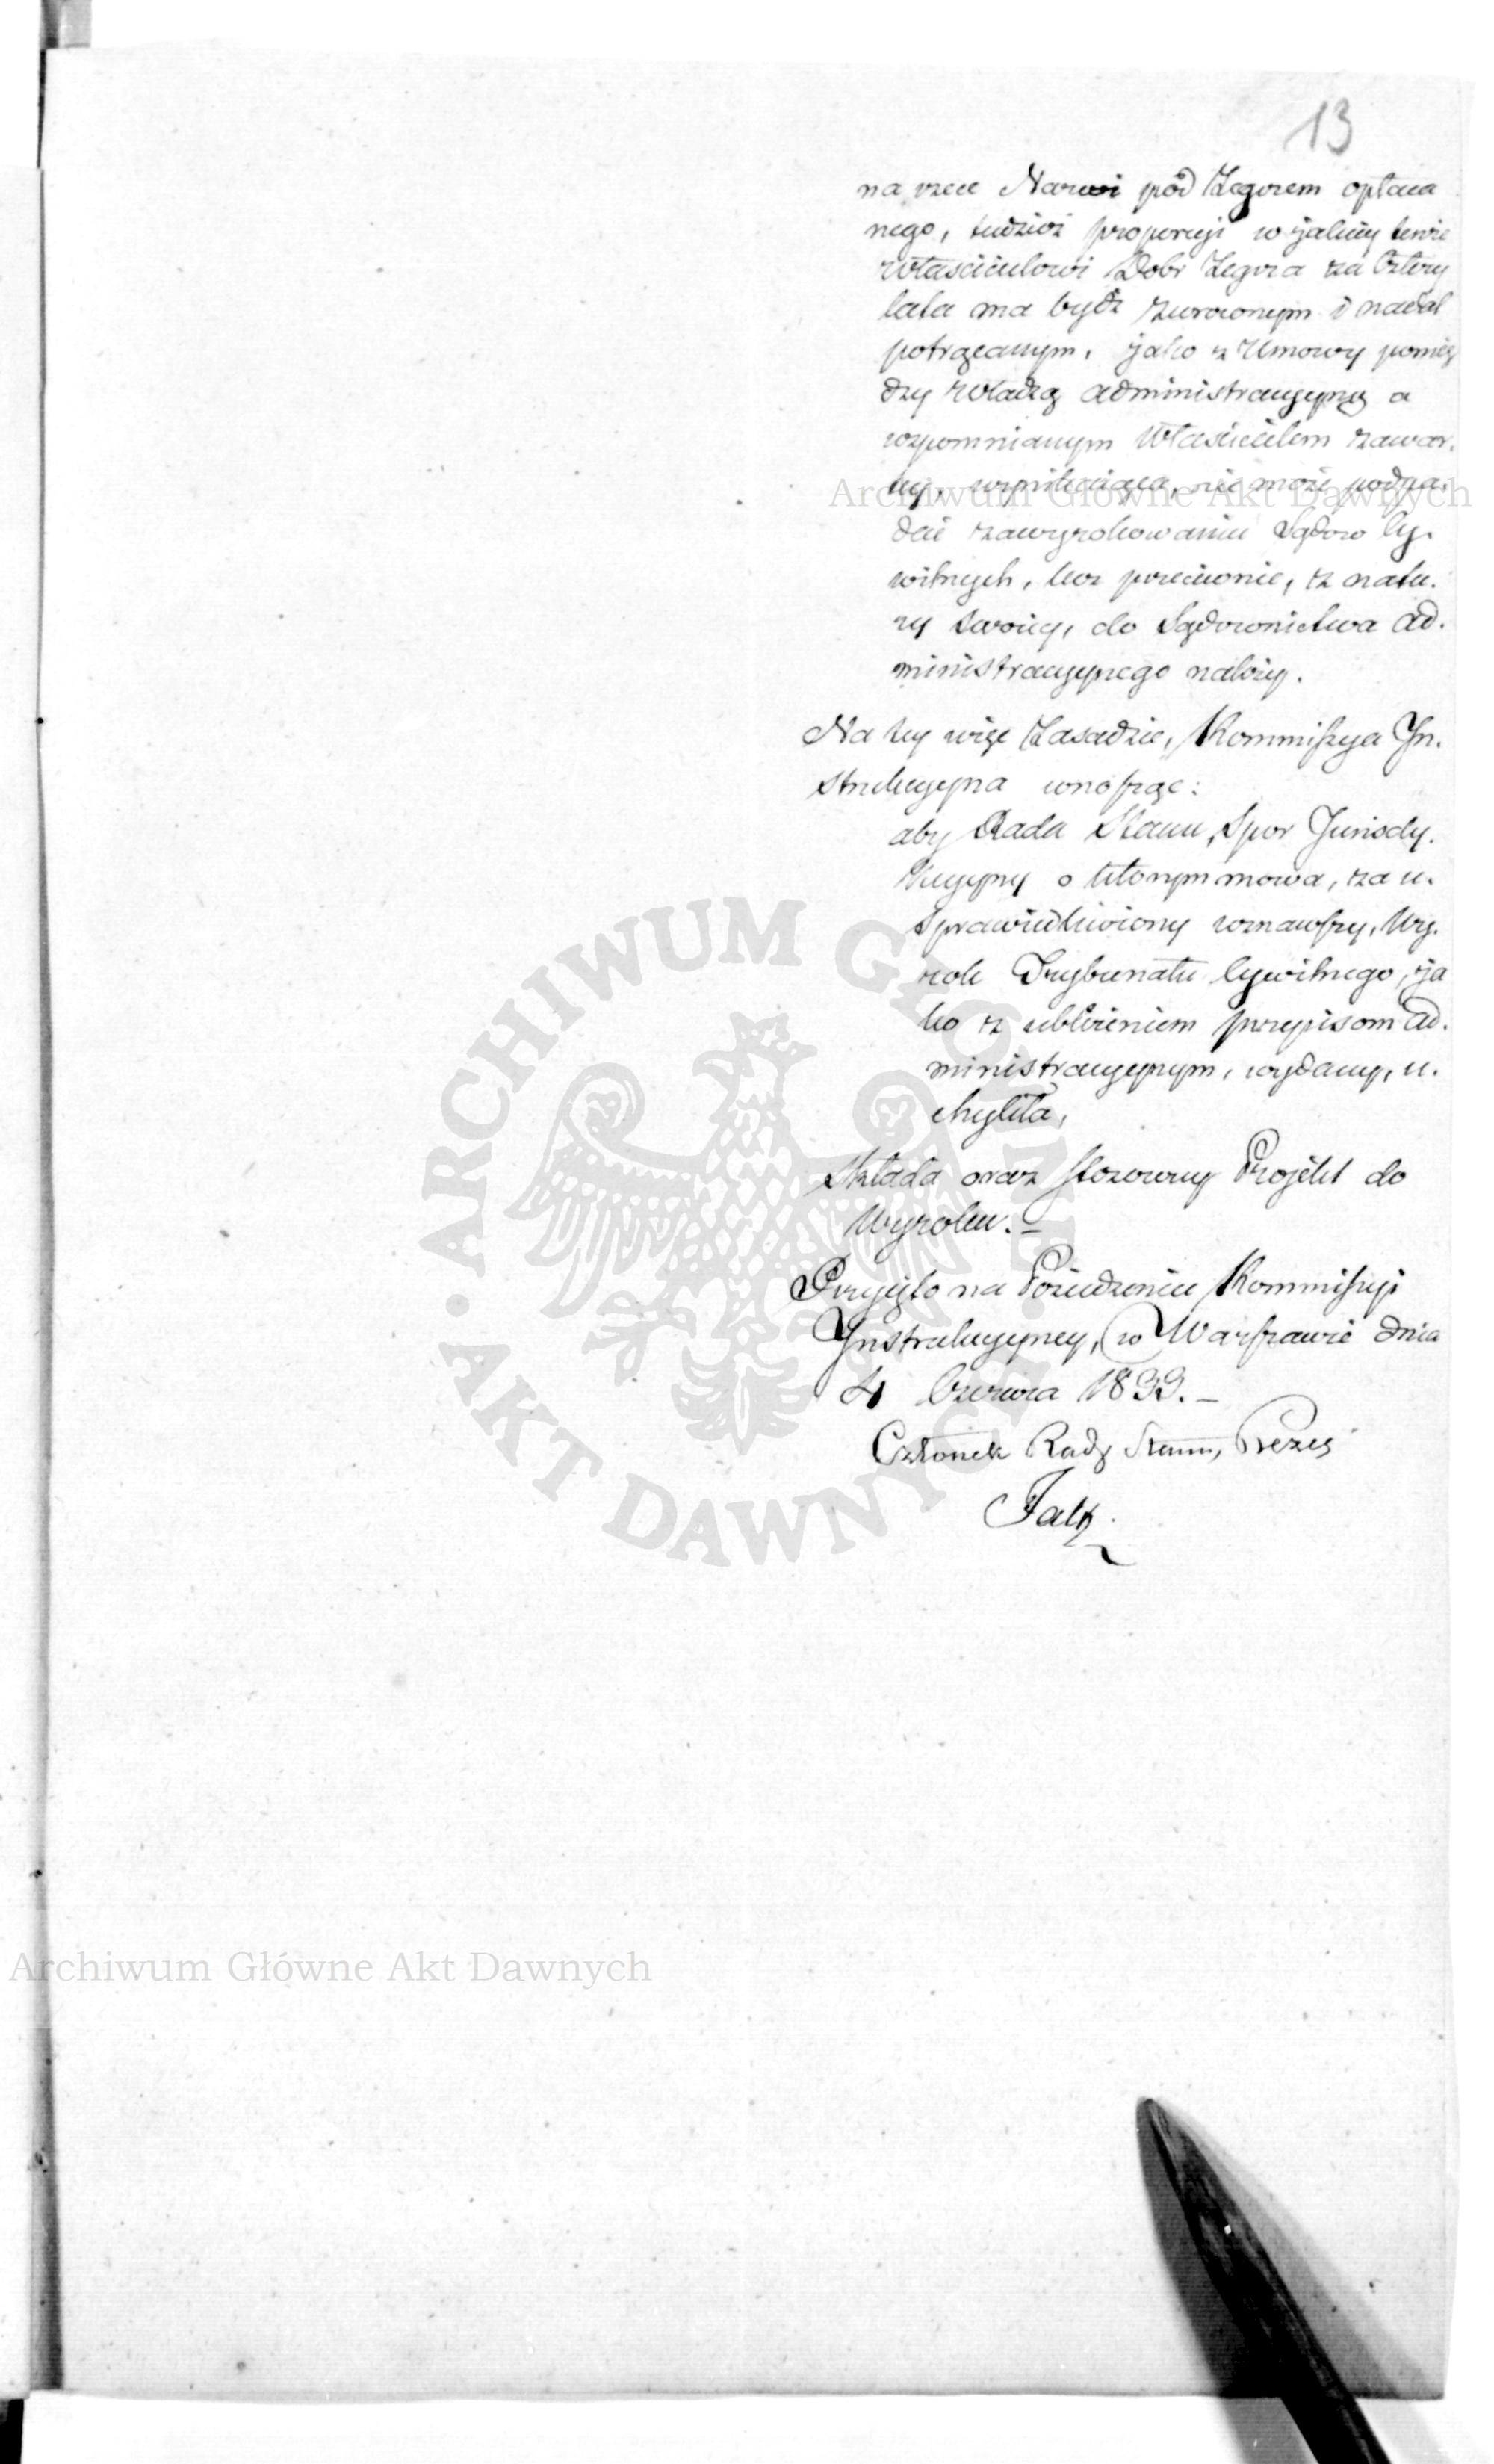 13
na rzece Narwi pod Zegrzem opłaca
nego, tudzież proporcyi w jakiey tenże
Właścicielowi Dobr Zegrza za Cztery
lata ma bydź zwroconym i nadal
potrącanym, jako z Umowy pomię
dzy Władzą administracyyną a
wspomnianym Właścicielem zawar.
tey, wynikaiąca, nie może podpa.
dać zawyrokowaniu Sądow Cy.
wilnych, lecz przeciwnie, z natu.
ry swoiey, do Sądownictwa Ad.
ministracyynego należy.
Na tey więc Zasadzie, Kommissya In.
strukcyyna wnosząc:
aby Rada Stanu, Spor Jurisdy.
kcyyny o którym mowa, za u.
sprawiedliwiony uznawszy, Wy.
rok Trybunału Cywilnego, ja
ko z ubliżeniem przepisom Ad.
ministracyynym, wydany, u.
chyliła,
Składa oraz stosowny Projekt do
Wyroku. –
Przyjęto na Posiedzeniu Kommissyi
Instrukcyyney, w Warszawie dnia
4 Czerwca 1833. –
Członek Rady Stanu, Prezes
Archiwum Główne Akt Dawnych
ARCHIWUM GŁÓWNE AKT DAWNYCH
Archiwum Główne Akt Dawnych